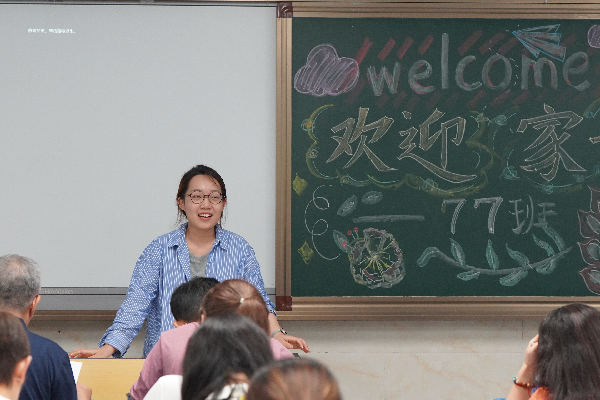 welcome
欢迎 家
77班